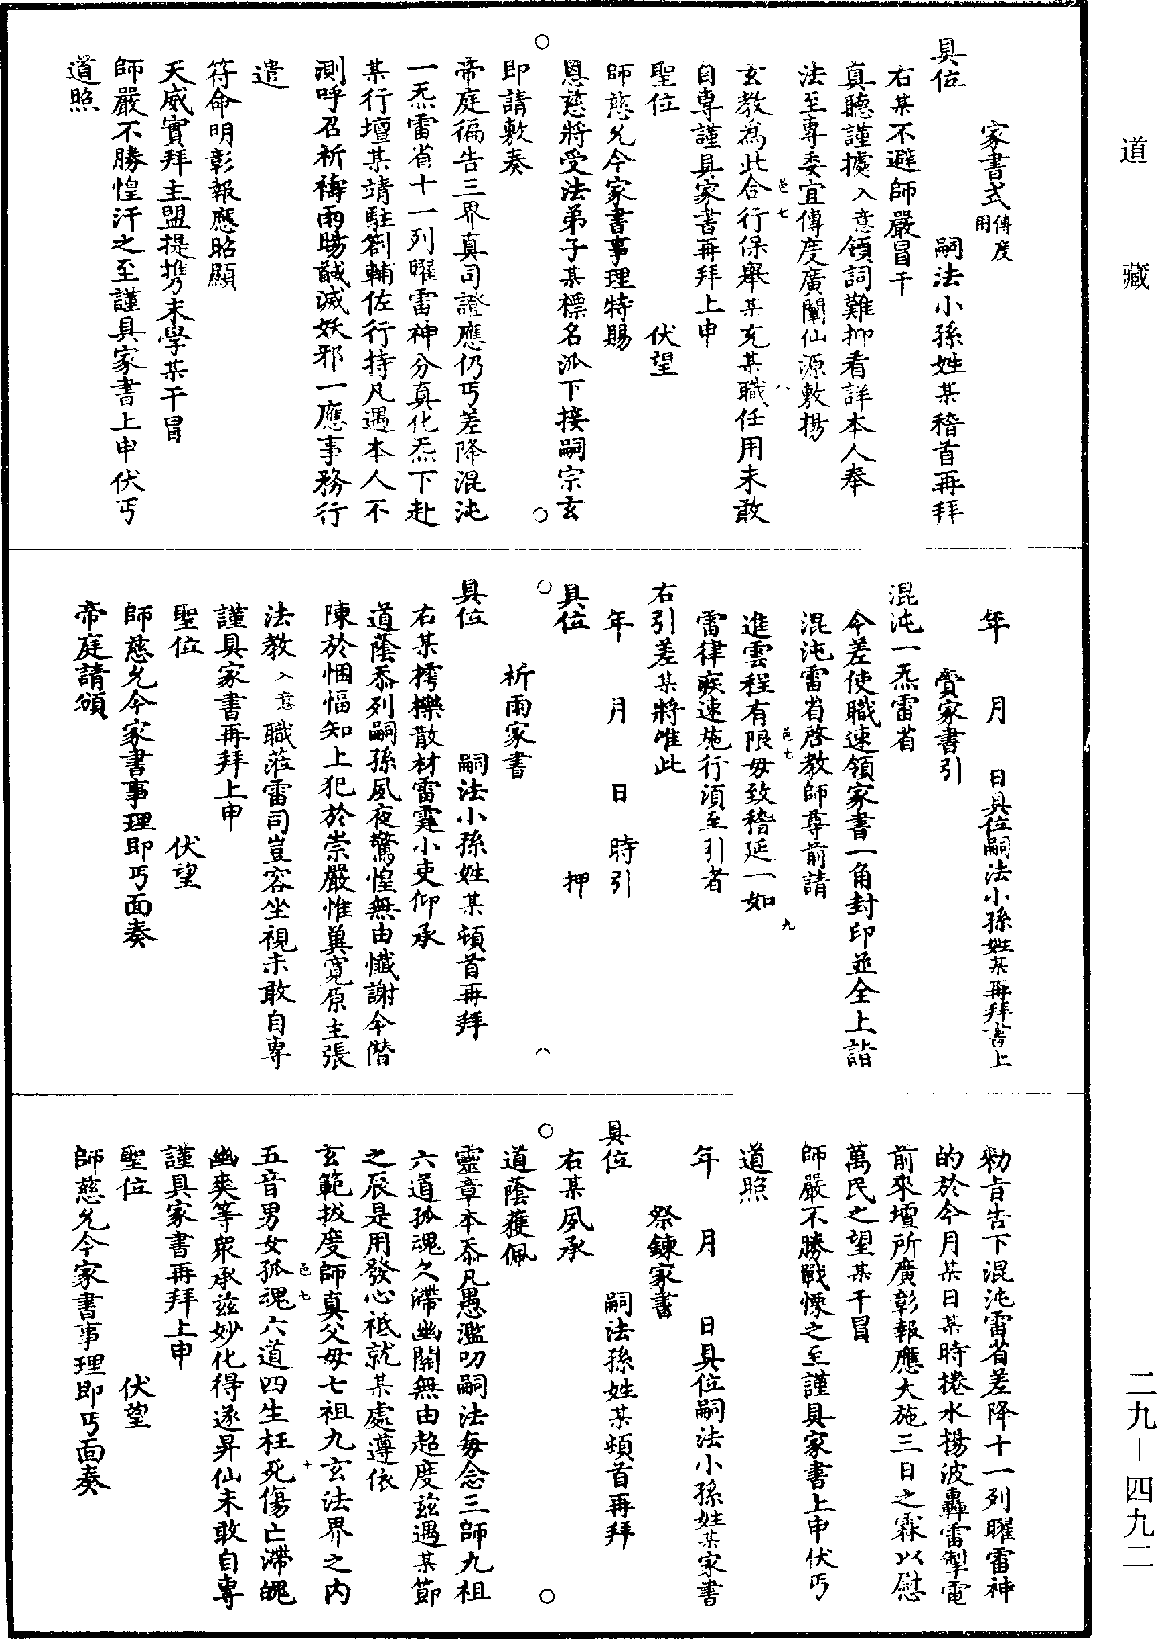 道藏
家書式傳度用
具位　嗣法小孫姓某稽首再拜
右某不避師嚴冒干
真聽謹據入意領詞難抑看詳本人奉
法至專委宜傳度廣闡仙源敷揚
玄教為此合行保舉某充某職任用未敢
自專謹具家書再拜上申
聖位　伏望
師慈允今家書事理特賜
恩慈將受法弟子某標名派下接嗣宗玄
即請敷奏
帝庭徧告三界真司證應仍丐差降混沌
一炁雷省十一列曜雷神分真化炁下赴
某行壇某靖駐劄輔佐行持凡遇本人不
測呼召祈禱雨暘馘滅妖邪一應事務行
遣
符命明彰報應昭顯
天威實拜主盟提携乃末學某干冒
師嚴不勝惶汗之至謹具家書上申伏丐
道照
年　月　日具位嗣法小孫姓某再拜書上
賫家書引
混沌一炁雷省
今差使職速領家書一角封印並全上詣
混沌雷省啓教師尊前請
進雲程有限毋致稽延一如
雷律疾速施行須至引者
右引差某將惟此
年　月　日　時引
具位　押
祈雨家書
具位　嗣法小孫姓某頓首再拜
右某樗櫟散材雷霆小吏仰承
道蔭忝列嗣孫夙夜驚惶無由懺謝今僭
陳於悃愊知上犯於崇嚴惟冀寬原主張
法教入意職蒞雷司豈容坐視未敢自專
謹具家書再拜上申
聖位　伏望
師慈允今家書事理即丐面奏
帝庭請頒
勑旨告下混沌雷省差降十一列曜雷神
的於今月某日某時捲水揚波轟雷掣電
前來壇所廣彰報應大施三日之霖以慰
萬民之望某干冒
師嚴不勝戰慄之至謹具家書上申伏丐
道照
年　月　日具位嗣法小孫姓某家書
祭鍊家書
具位　嗣法孫姓某頓首再拜
右某夙承
道蔭獲佩
靈章本忝凡愚濫叨嗣法每念三師九祖
六道孤魂久滯幽關無由超度茲遇某節
之辰是用發心祇就某處遵依
玄範拔度師真父母七祖九玄法界之內
五音男女孤魂六道四生枉死傷亡滯魄
幽爽等衆承茲妙化得遂昇仙未敢自專
謹具家書再拜上申
聖位　伏望
師慈允今家書事理即丐面奏
二九—四九二